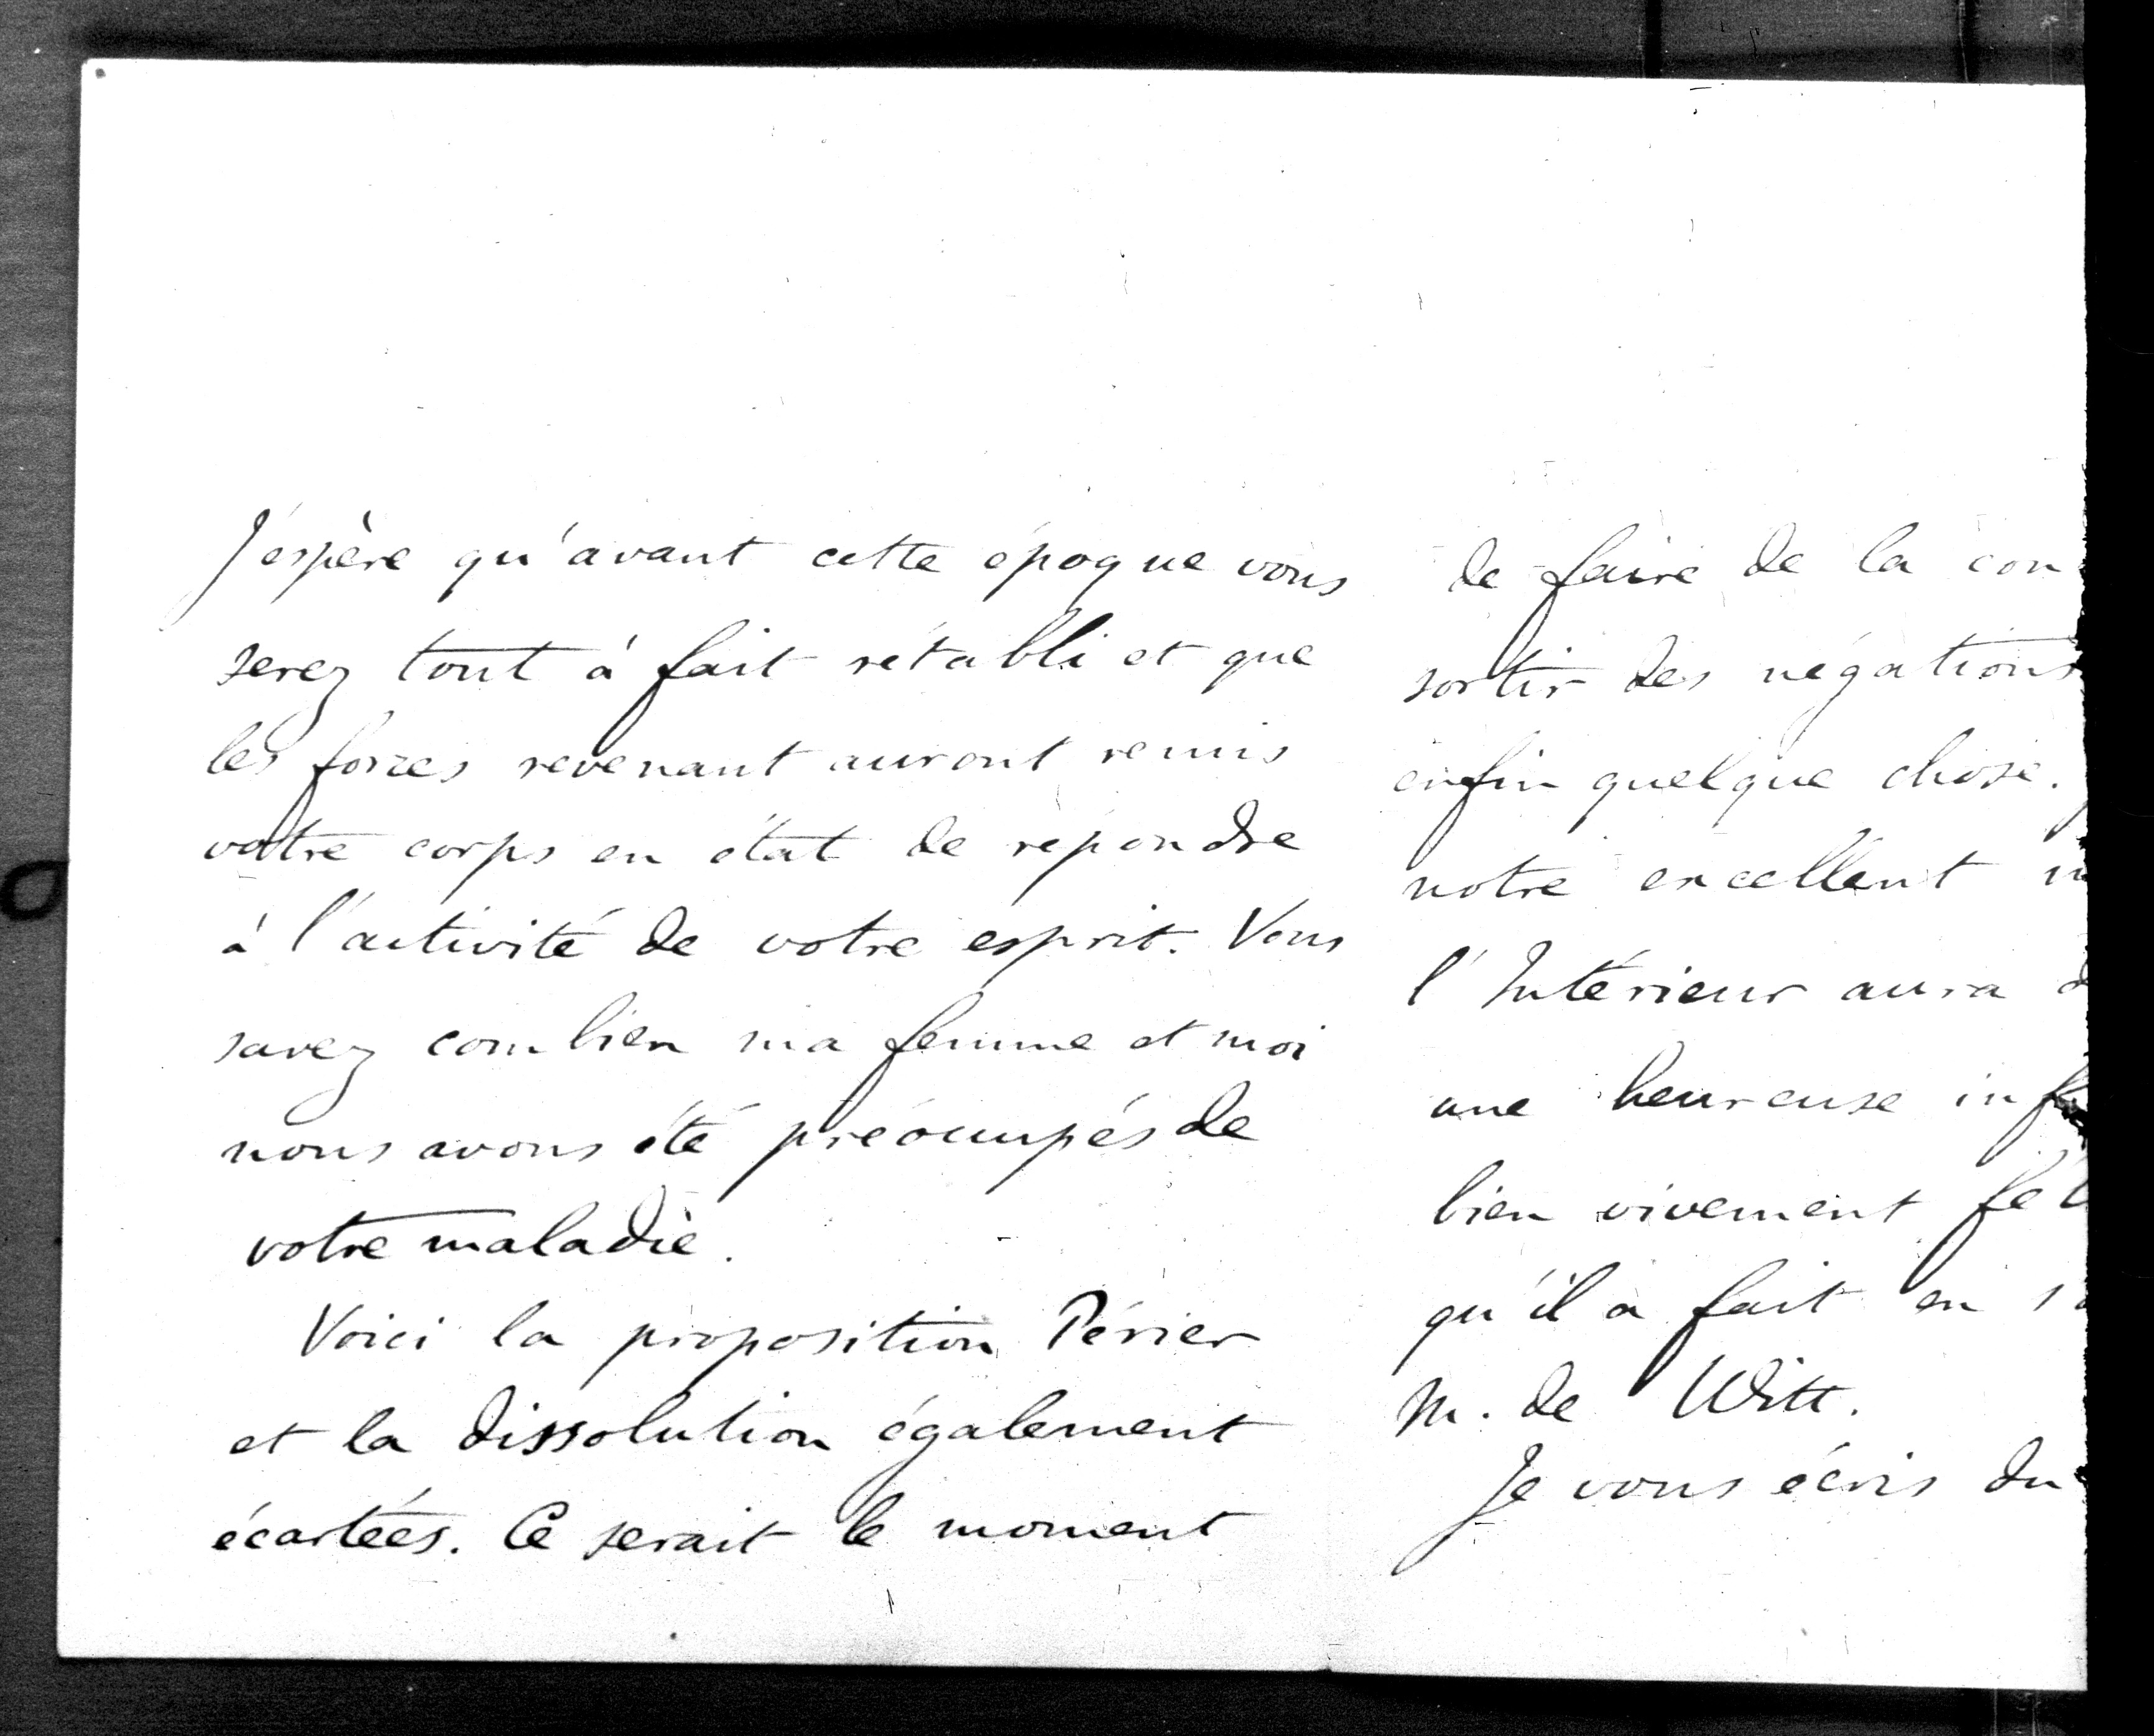 J'espère qu'avant cette époque vous
serez tout à fait rétabli et que
les forces revenant auront remis
votre corps en état de répondre
à l'activité de votre esprit. Vous
savez combien ma femme et moi
nous avons été préocupés de
votre maladie.
Voici la proposition Périer
et la dissolution également
écartées. Ce serait le moment
de faire de la con
sortir des négations
enfin quelque chose.
notre excellent
l'Intérieur aura
une heureuse inf
bien vivement fel
qu'il a fait en
M. de Witt.
Je vous écris du